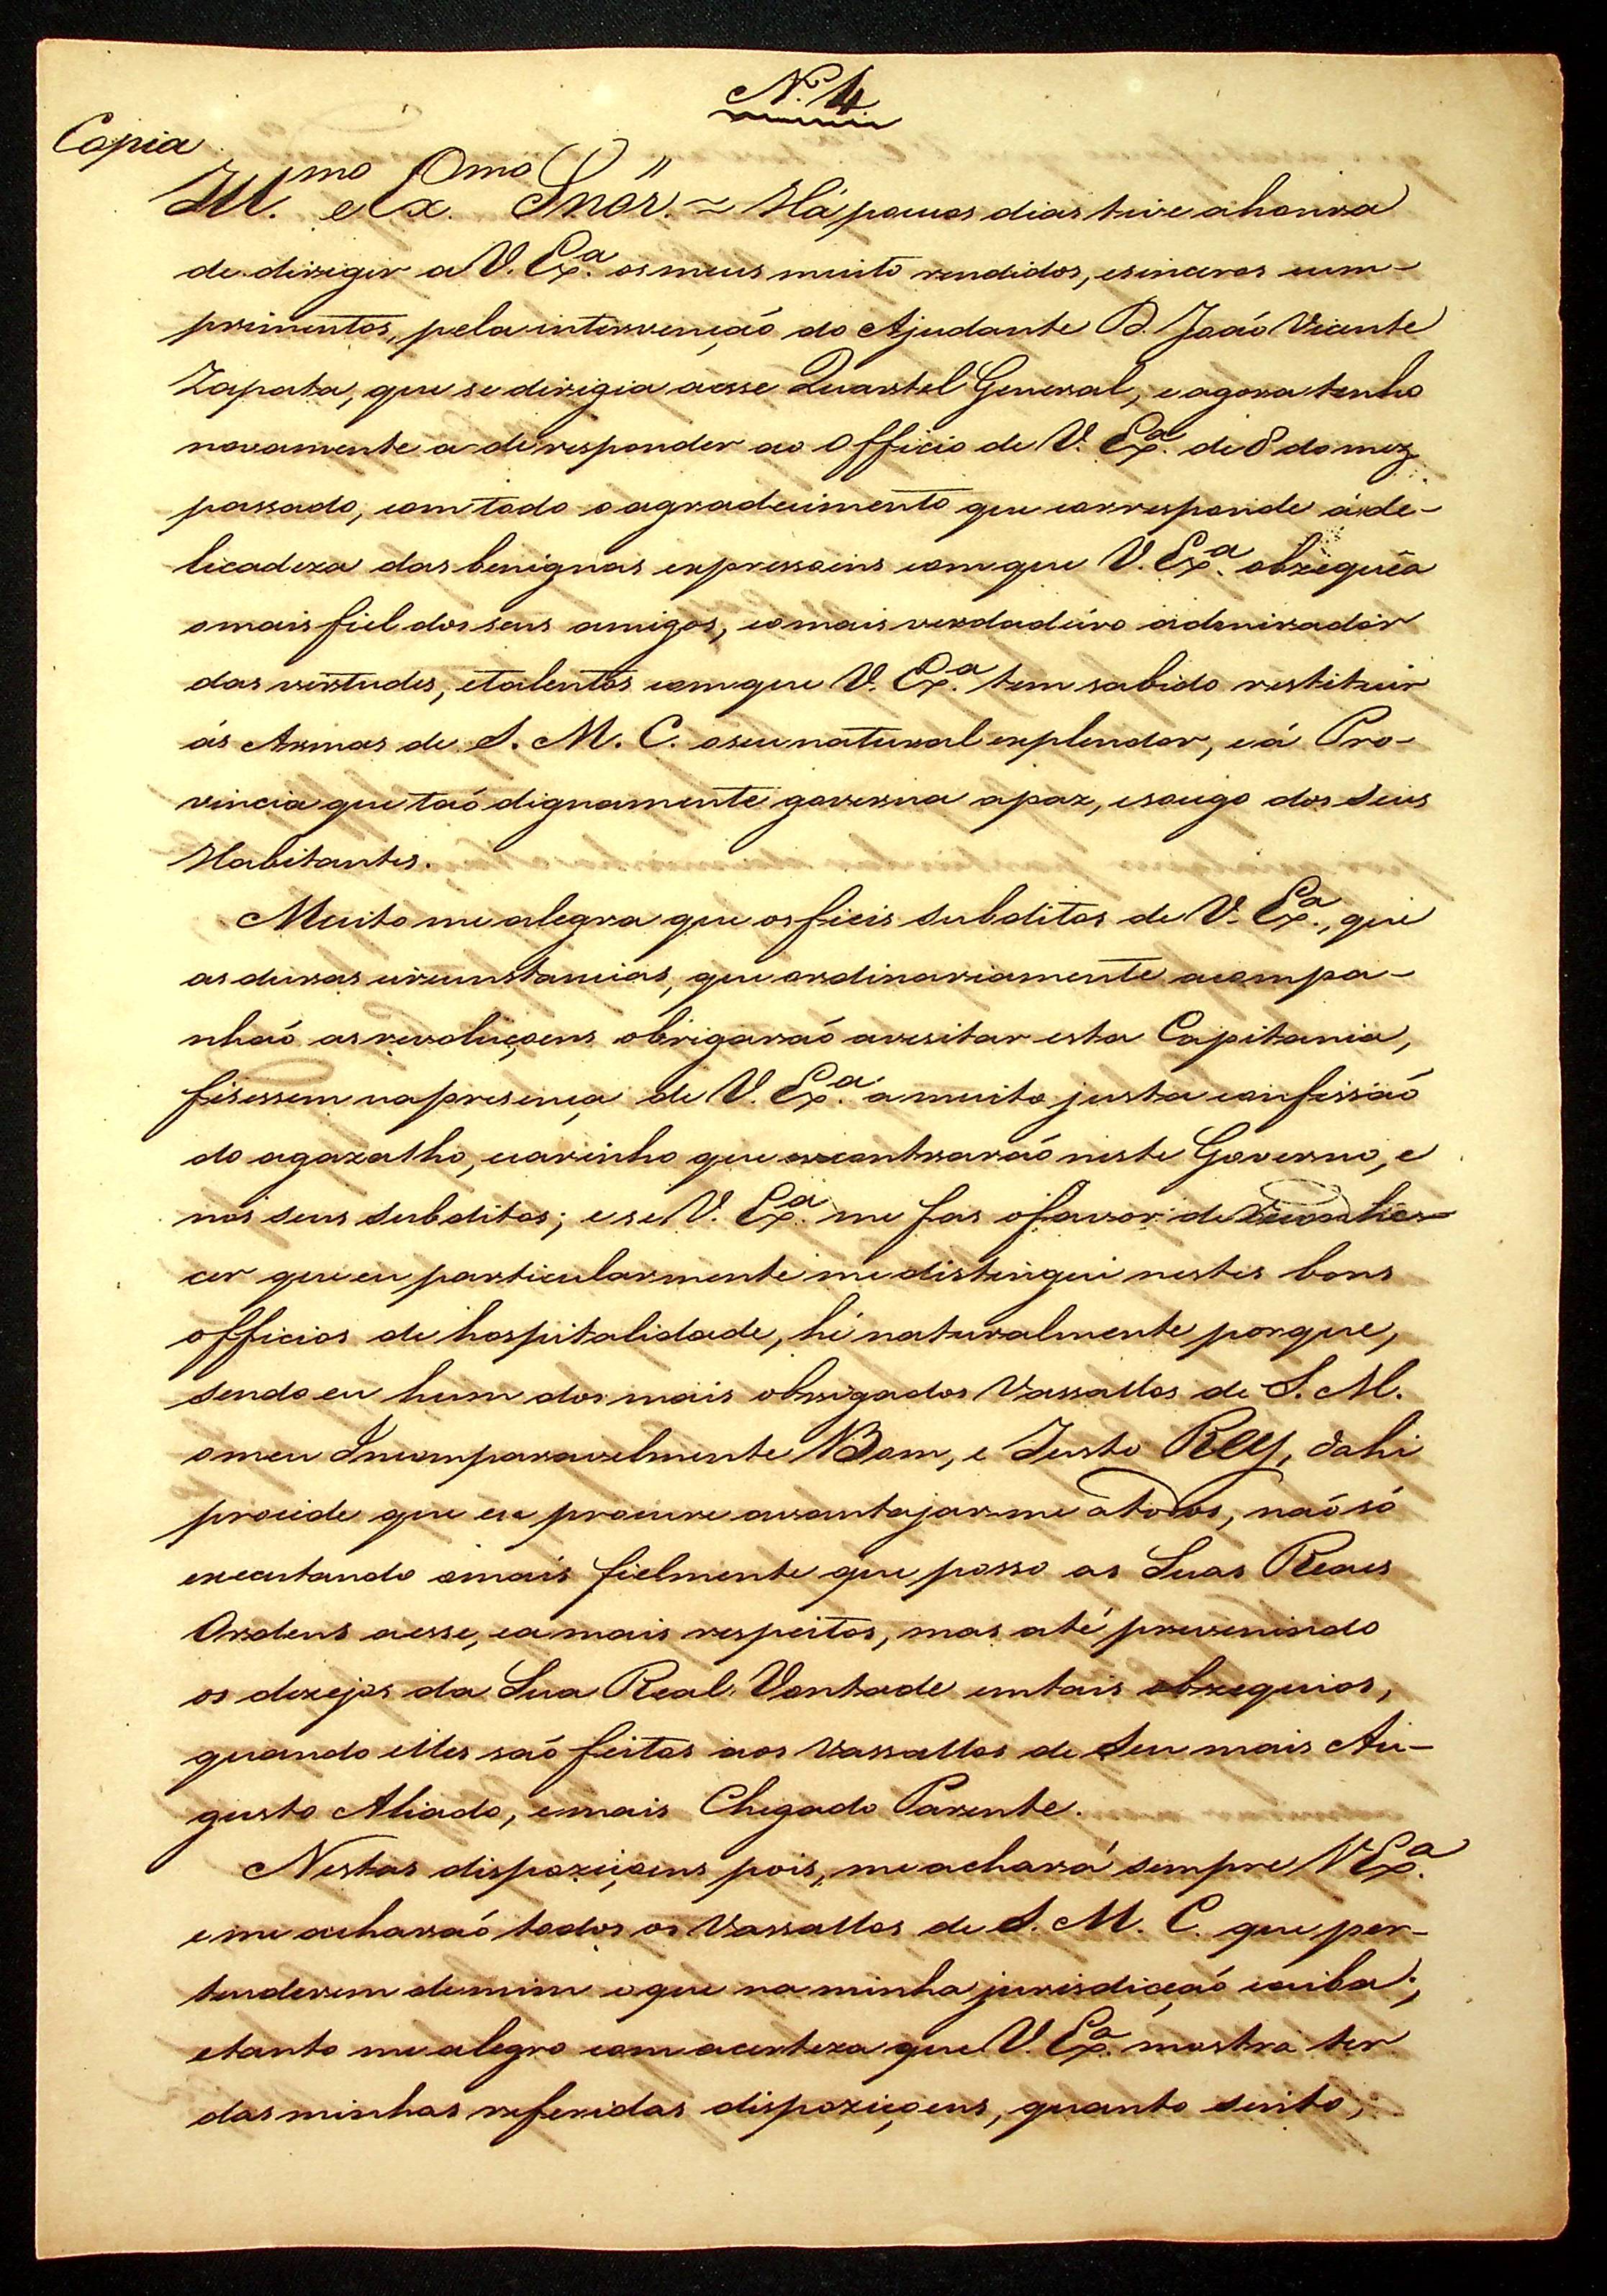 N.º 4
Copia
Ill.mo e Ex.mo Snõr. = Há poucos dias tive a honra
de dirigir a V. Ex.a os meus muito rendidos, e sinceros cum-
primentos, pela intervenção do Ajudante D. João Vicente
Zapata, que se dirigia a esse Quartel General, e agora tenho
novamente a de responder ao Officio de V. Ex.a de 8 do mez
passado, com todo o agradecimento que corresponde á de-
licadeza das benignas expressoens com que V. Ex.a obzequêa
o mais fiel dos seus amigos, e o mais verdadeiro admirador
das virtudes, e talentos com que V. Ex.a tem sabido restituir
ás Armas de S. M. C. o seu natural explendor, e á Pro-
vincia que taõ dignamente governa a paz, e socego dos seus
Habitantes.
Muito me alegra que os fieis subditos de V. Ex.a, que
as duras circunstancias, que ordinariamente acompa-
nhaõ as revoluçoens obrigaraõ a vesitar esta Capitania,
fisessem na presença de V. Ex.a a muito justa confissaõ
do agazalho, e carinho que encontraraõ neste Governo, e
nos seus subditos; e se V. Ex.a me fas o favor de reconhe-
cer que eu particularmente me distingui nestes bons
officios de hospitalidade, hé naturalmente porque,
sendo eu hum dos mais obrigados Vassallos de S. M.
o meu Incomparavelmente Bom, e Justo Rey, dahi
procede que eu procure avantajarme a todos, naõ só
executando o mais fielmente que posso as Suas Reaes
Ordens a esse, e a mais respeitos, mas até prevenindo
os dezejos da Sua Real Vontade em tais obzequios,
quando elles saõ feitos aos Vassallos de Seu mais Au-
gusto Aliado, e mais Chegado Parente.
Nestas dispoziçoens pois, me achará sempre V Ex.a
e me acharaõ todos os Vassallos de S. M. C. que per-
tenderem de mim o que na minha jurisdicçaõ caiba;
e tanto me alegro com a certeza que V. Ex.a mostra ter
das minhas referidas dispoziçoens, quanto sinto,